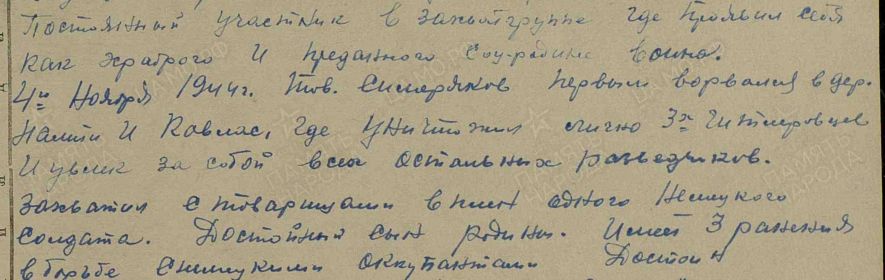 Постоянный участник в захватгруппе где проявил себя
как храброго и преданного соц-родине воина.
4го Ноября 1944г. тов. Симеряков первым ворвался в дер.
и Кавлас, где уничтожил лично 3х гитлеровцев
и увлек за собой всех остальных разведчиков.
Захватил с товарищами в плен одного немецкого
солдата. Достойный сын родины. Имеет 3 ранения
в борьбе с немецкими оккупантами Достоин